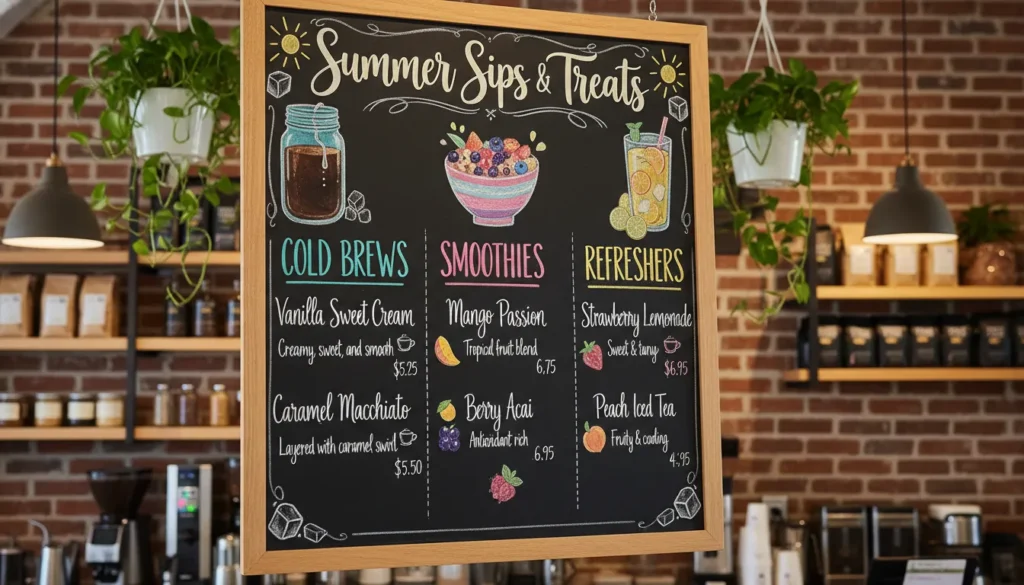 Summer Sips & Treats
COLD BREWS
Vanilla Sweet Cream
Creamy, sweet, and smooth
$5.25
Caramel Macchiato
Layered with caramel swirl
$5.50
SMOOTHIES
Mango Passion
Tropical fruit blend
6,75
Berry Acai
Antioxidant rich
6.95
REFRESHERS
Strawberry Lemonade
Sweet &
$6.95
Peach Iced Tea
Fruity &